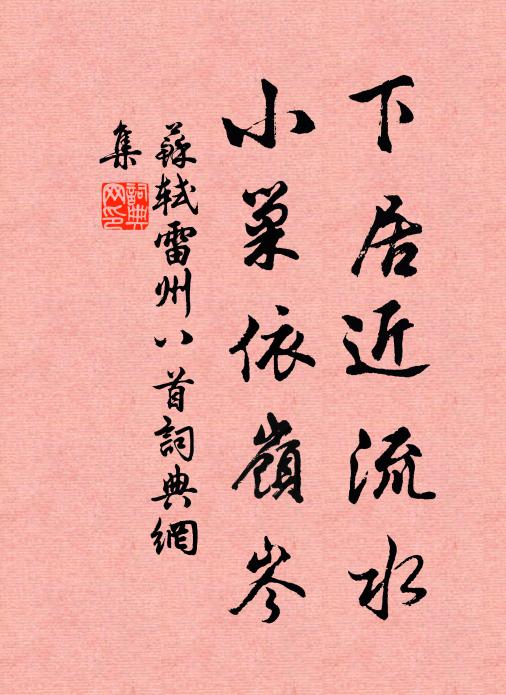 下居近流水
小巢依嶺岑
蘇軾雷州八首詞典網
集
詞典
网印